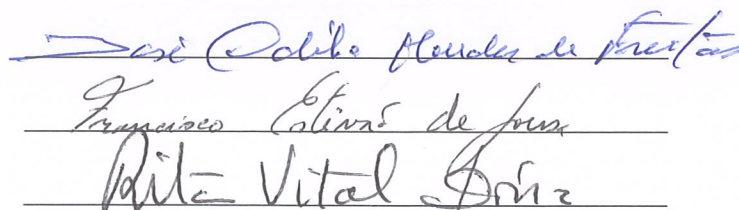 José Odilo Mendes de Freitas
Francisco Estevão de Sousa
Rita Vital